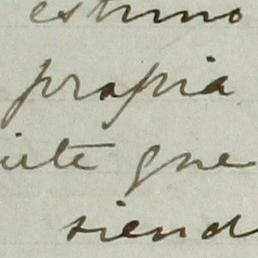 estimo
propia
iute que
siend